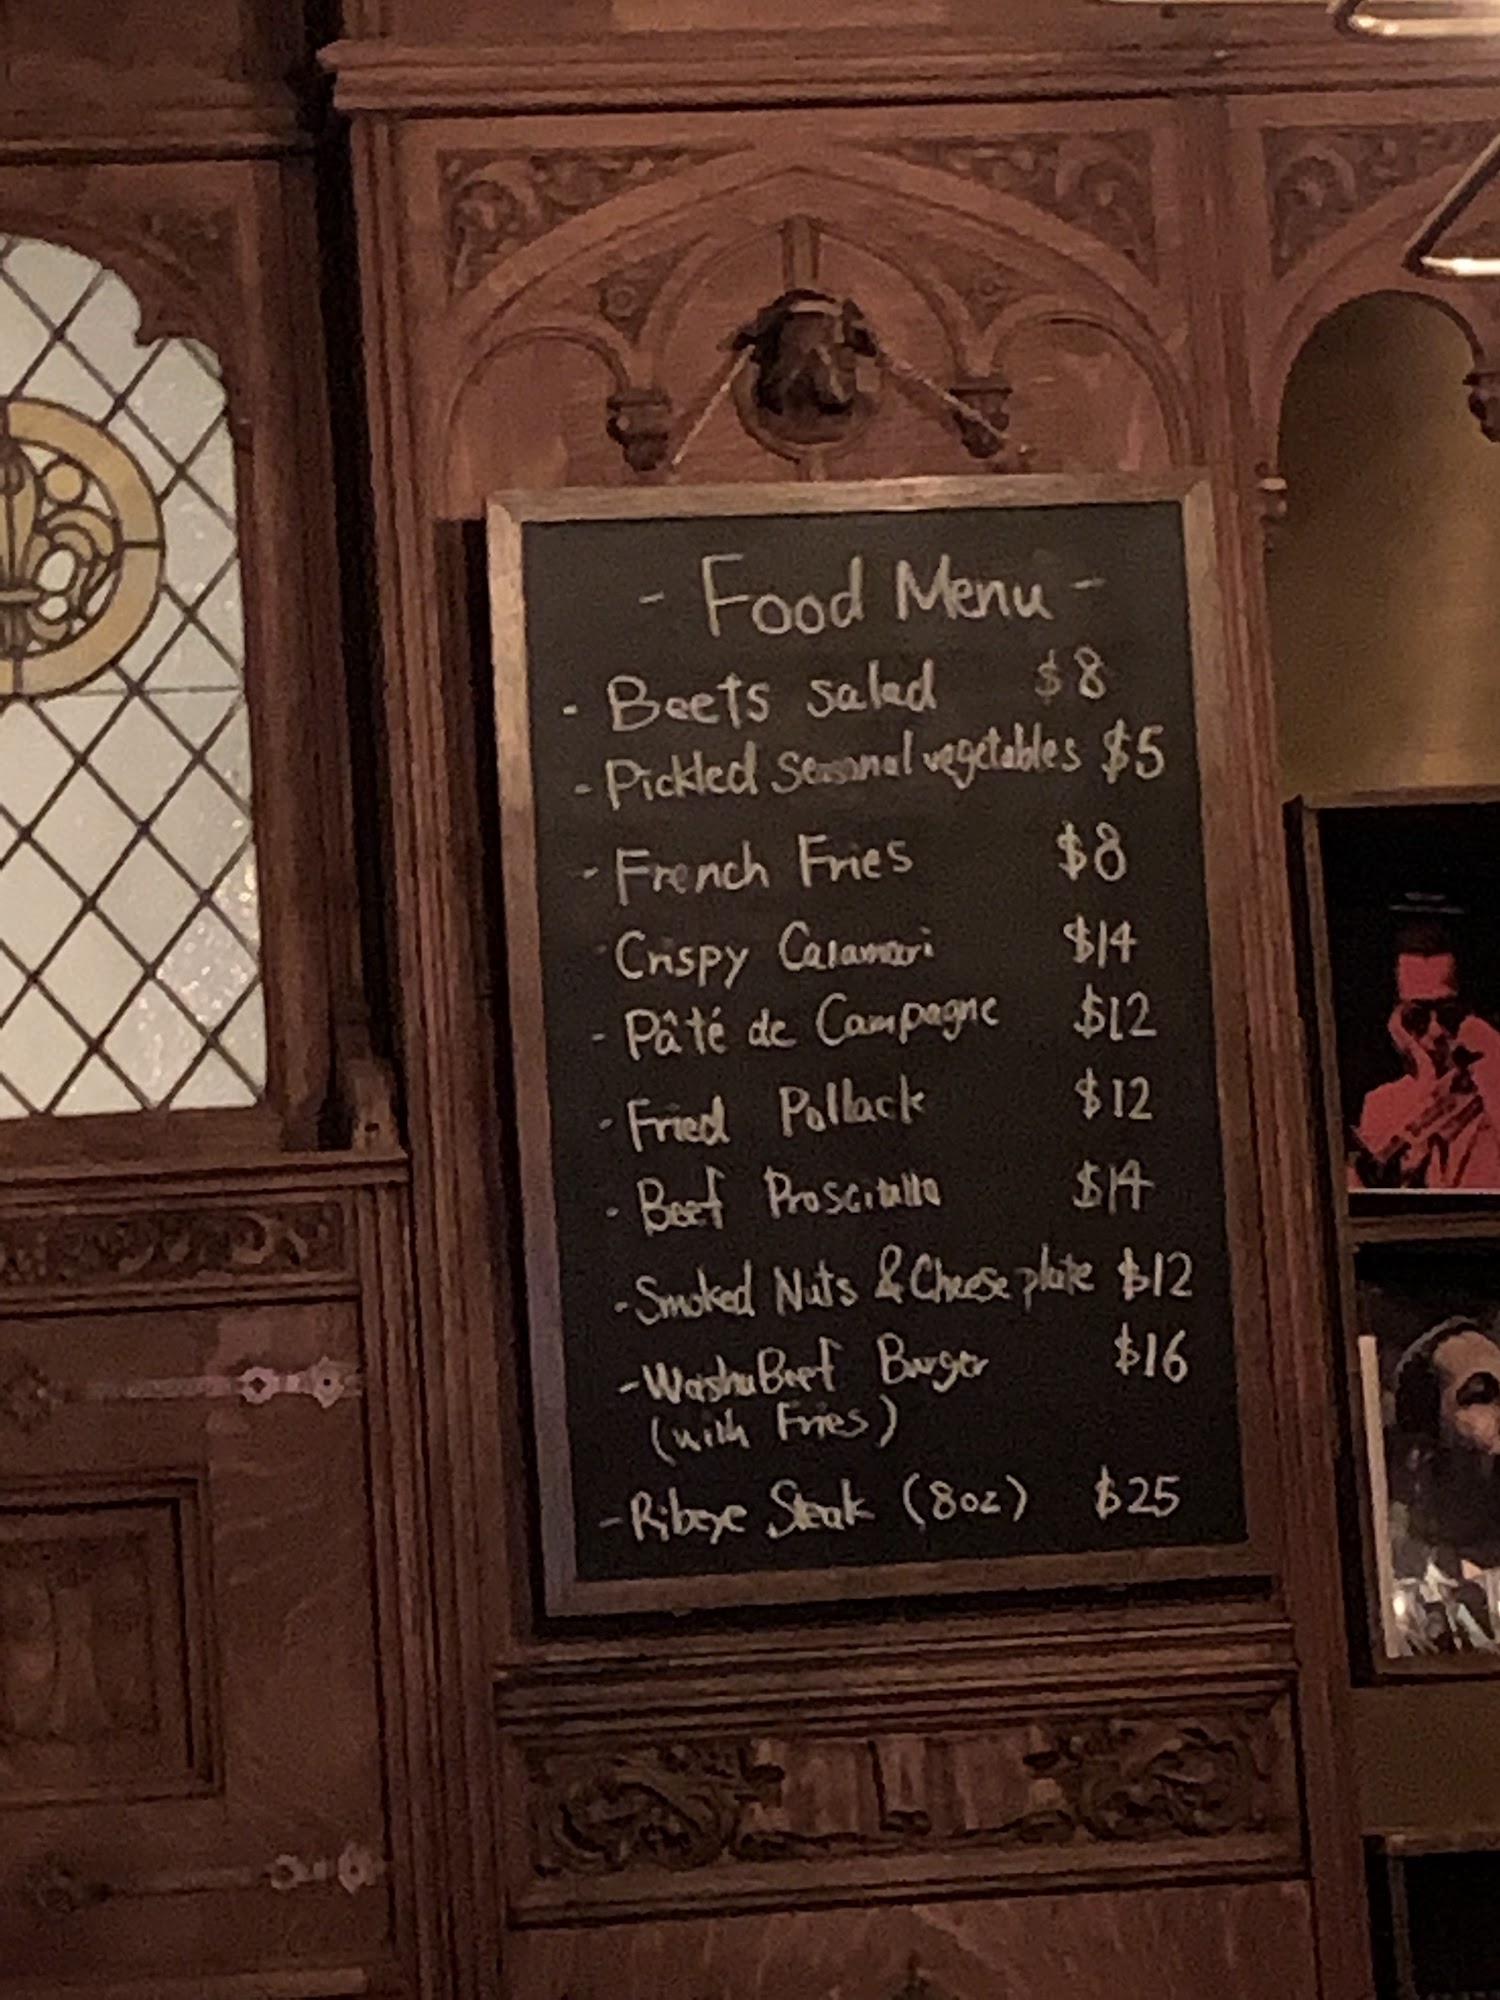 - Food Menu -
- Beets salad $8
- Pickled seasonal vegetables $5
- French Fries $8
- Crispy Calamari $14
- Pâté de Campagne $12
- Fried Pollack $12
- Beef Prosciutto $14
- Smoked Nuts & Cheese plate $12
- Washu Beef Burger $16
(with Fries)
- Ribeye Steak (8oz) $25